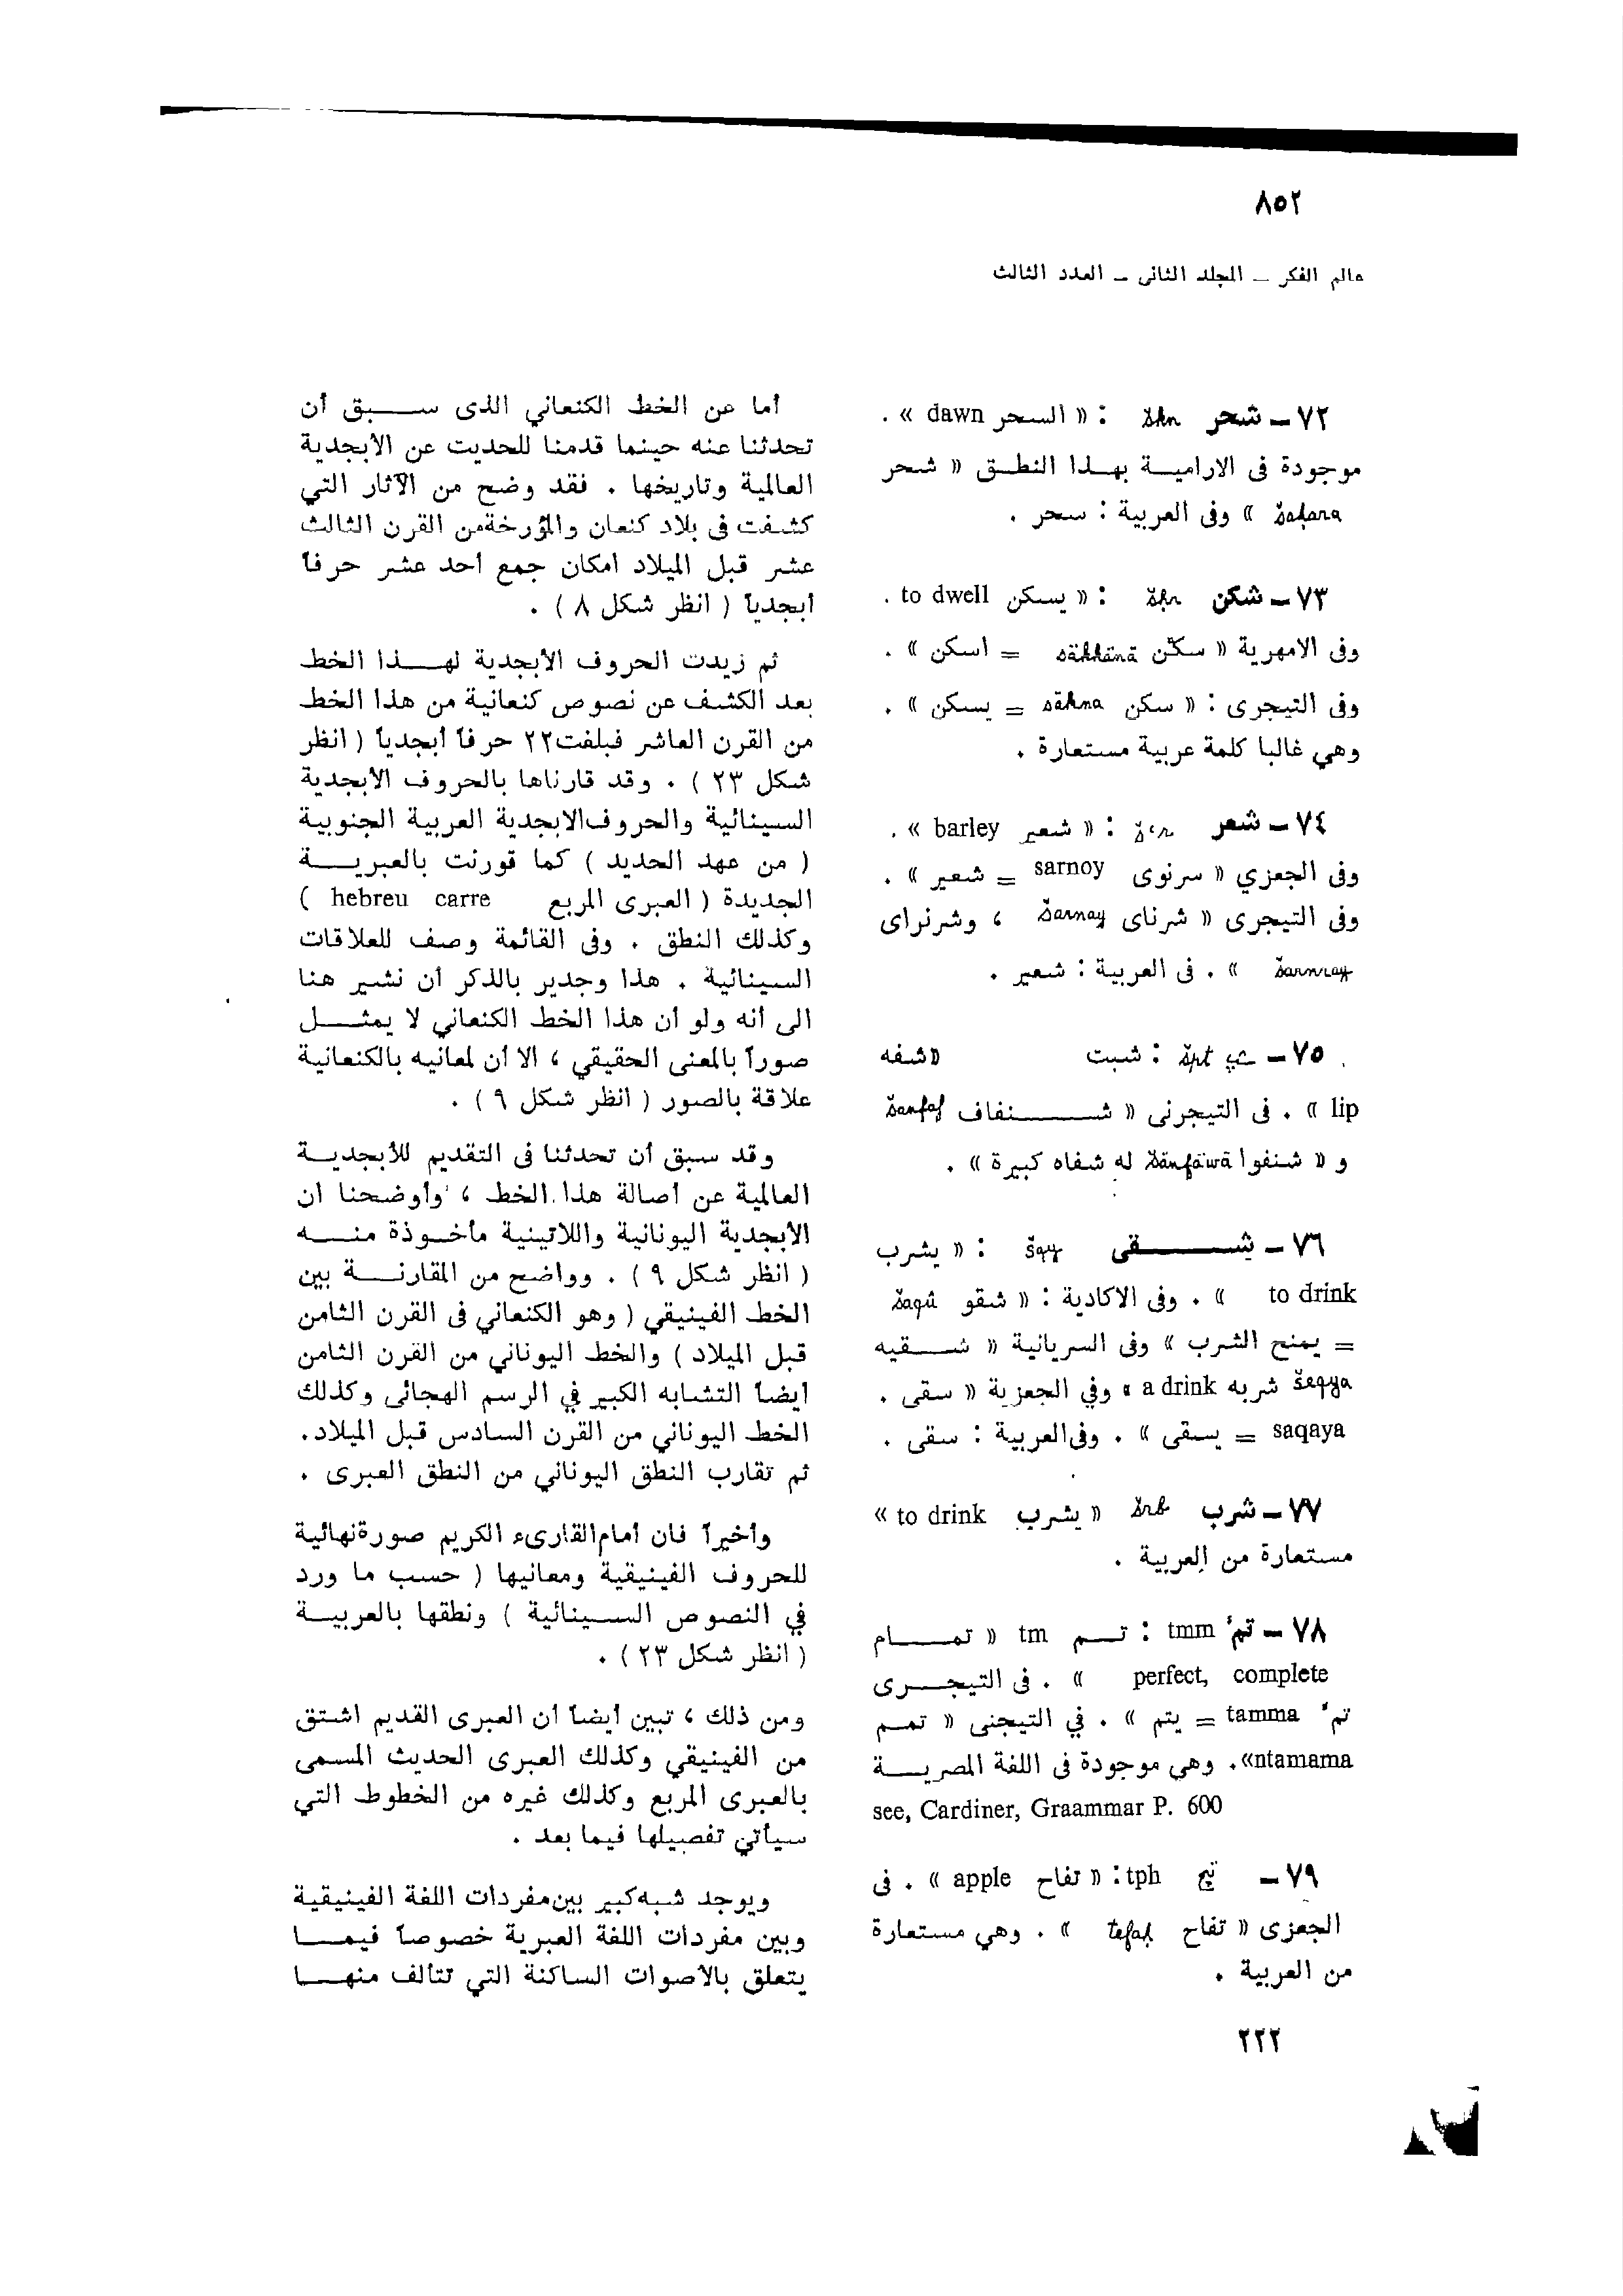 ٨٥٢
عالم الفكر ــ المجلد الثانى ــ العدد الثالث
٧٢ ــ شحر šḥr : « السحر dawn » .
موجودة فى الارامية بهذا النطق « شحر
šaḥara » وفى العربية : سحر .
٧٣ ــ شكن škn : « يسكن to dwell .
وفى الامهرية « سكّن säkkänä = اسكن » .
وفى التيجرى : « سكن säkna = يسكن » .
وهي غالبا كلمة عربية مستعارة .
٧٤ ــ شعر š‘r : « شعير barley » .
وفى الجعزي « سرنوى sarnoy = شعير » .
وفى التيجرى « شرناى šarnay ، وشرنراى
» . فى العربية : شعير .
٧٥ ــ špt : شبت « شفه
lip » . فى التيجرنى « شنفاف šanfaf
و « شنفوا šänfäwä له شفاه كبيرة » .
٧٦ ــ شقى šqy : « يشرب
to drink » . وفى الاكادية : « شقو šaqû
= يمنح الشرب » وفى السريانية « شقيه
šeqya شربه a drink » وفي الجعزية « سقى .
saqaya = يسقى » . وفى العربية : سقى .
٧٧ ــ شرب šrb « يشرب to drink »
مستعارة من العربية .
٧٨ ــ تمّ tmm : تم tm « تمام
perfect, complete » . فى التيجرى
تمّ tamma = يتم » . في التيجنى « تمم
ntamama» . وهي موجودة فى اللغة المصرية
see, Cardiner, Graammar P. 600
٧٩ ــ tph : « تفاح apple » . فى
الجعزى « تفاح tefaḥ » . وهي مستعارة
من العربية .
أما عن الخط الكنعاني الذى سبق أن
تحدثنا عنه حينما قدمنا للحديث عن الأبجدية
العالمية وتاريخها . فقد وضح من الآثار التي
كشفت فى بلاد كنعان والمؤرخة من القرن الثالث
عشر قبل الميلاد امكان جمع أحد عشر حرفاً
أبجدياً ( انظر شكل ٨ ) .
ثم زيدت الحروف الأبجدية لهذا الخط
بعد الكشف عن نصوص كنعانية من هذا الخط
من القرن العاشر فبلفت ٢٢ حرفاً أبجدياً ( انظر
شكل ٢٣ ) . وقد قارناها بالحروف الأبجدية
السينائية والحروف الابجدية العربية الجنوبية
( من عهد الحديد ) كما قورنت بالعبرية
الجديدة ( العبرى المربع hebreu carre )
وكذلك النطق . وفى القائمة وصف للعلاقات
السينائية . هذا وجدير بالذكر أن نشير هنا
الى أنه ولو أن هذا الخط الكنعاني لا يمثل
صوراً بالمعنى الحقيقي ، الا أن لمعانيه بالكنعانية
علاقة بالصور ( انظر شكل ٩ ) .
وقد سبق أن تحدثنا فى التقديم للأبجدية
العالمية عن أصالة هذا الخط ، وأوضحنا أن
الابجدية اليونانية واللاتينية مأخوذة منه
( انظر شكل ٩ ) . وواضح من المقارنة بين
الخط الفينيقي ( وهو الكنعاني فى القرن الثامن
قبل الميلاد ) والخط اليوناني من القرن الثامن
أيضاً التشابه الكبير في الرسم الهجائى وكذلك
الخط اليوناني من القرن السادس قبل الميلاد .
ثم تقارب النطق اليوناني من النطق العبرى .
وأخيراً فان أمام القارىء الكريم صورة نهائية
للحروف الفينيقية ومعانيها ( حسب ما ورد
في النصوص السينائية ) ونطقها بالعربية
( انظر شكل ٢٣ ) .
ومن ذلك ، تبين أيضاً أن العبرى القديم اشتق
من الفينيقي وكذلك العبرى الحديث المسمى
بالعبرى المربع وكذلك غيره من الخطوط التي
سيأتي تفصيلها فيما بعد .
ويوجد شبه كبير بين مفردات اللغة الفينيقية
وبين مفردات اللغة العبرية خصوصاً فيما
يتعلق بالاصوات الساكنة التي تتألف منها
٢٢٢